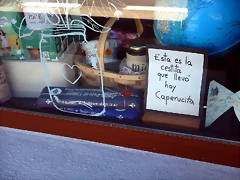 Esta es la
cestita
que llevó
hoy
Caperucita